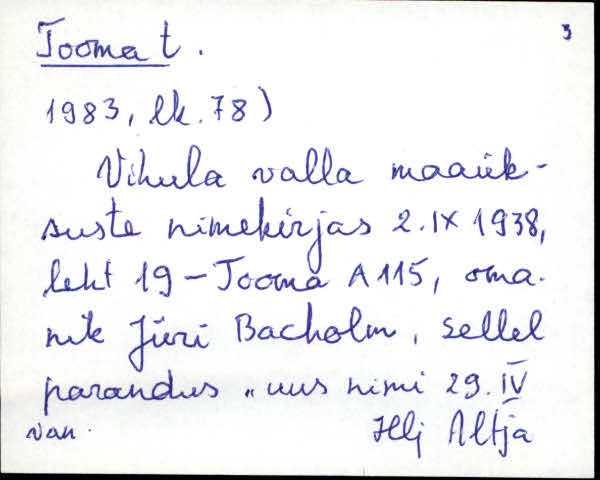 Tooma t. 3
1983, lk. 78)
Vihula valla maaük-
suste nimekirjas 2. IX 1938,
leht 19 - Tooma A 115, oma-
nik Jüri Bacholm, sellel
parandus „uus nimi 29. IV
van. Hlj Altja